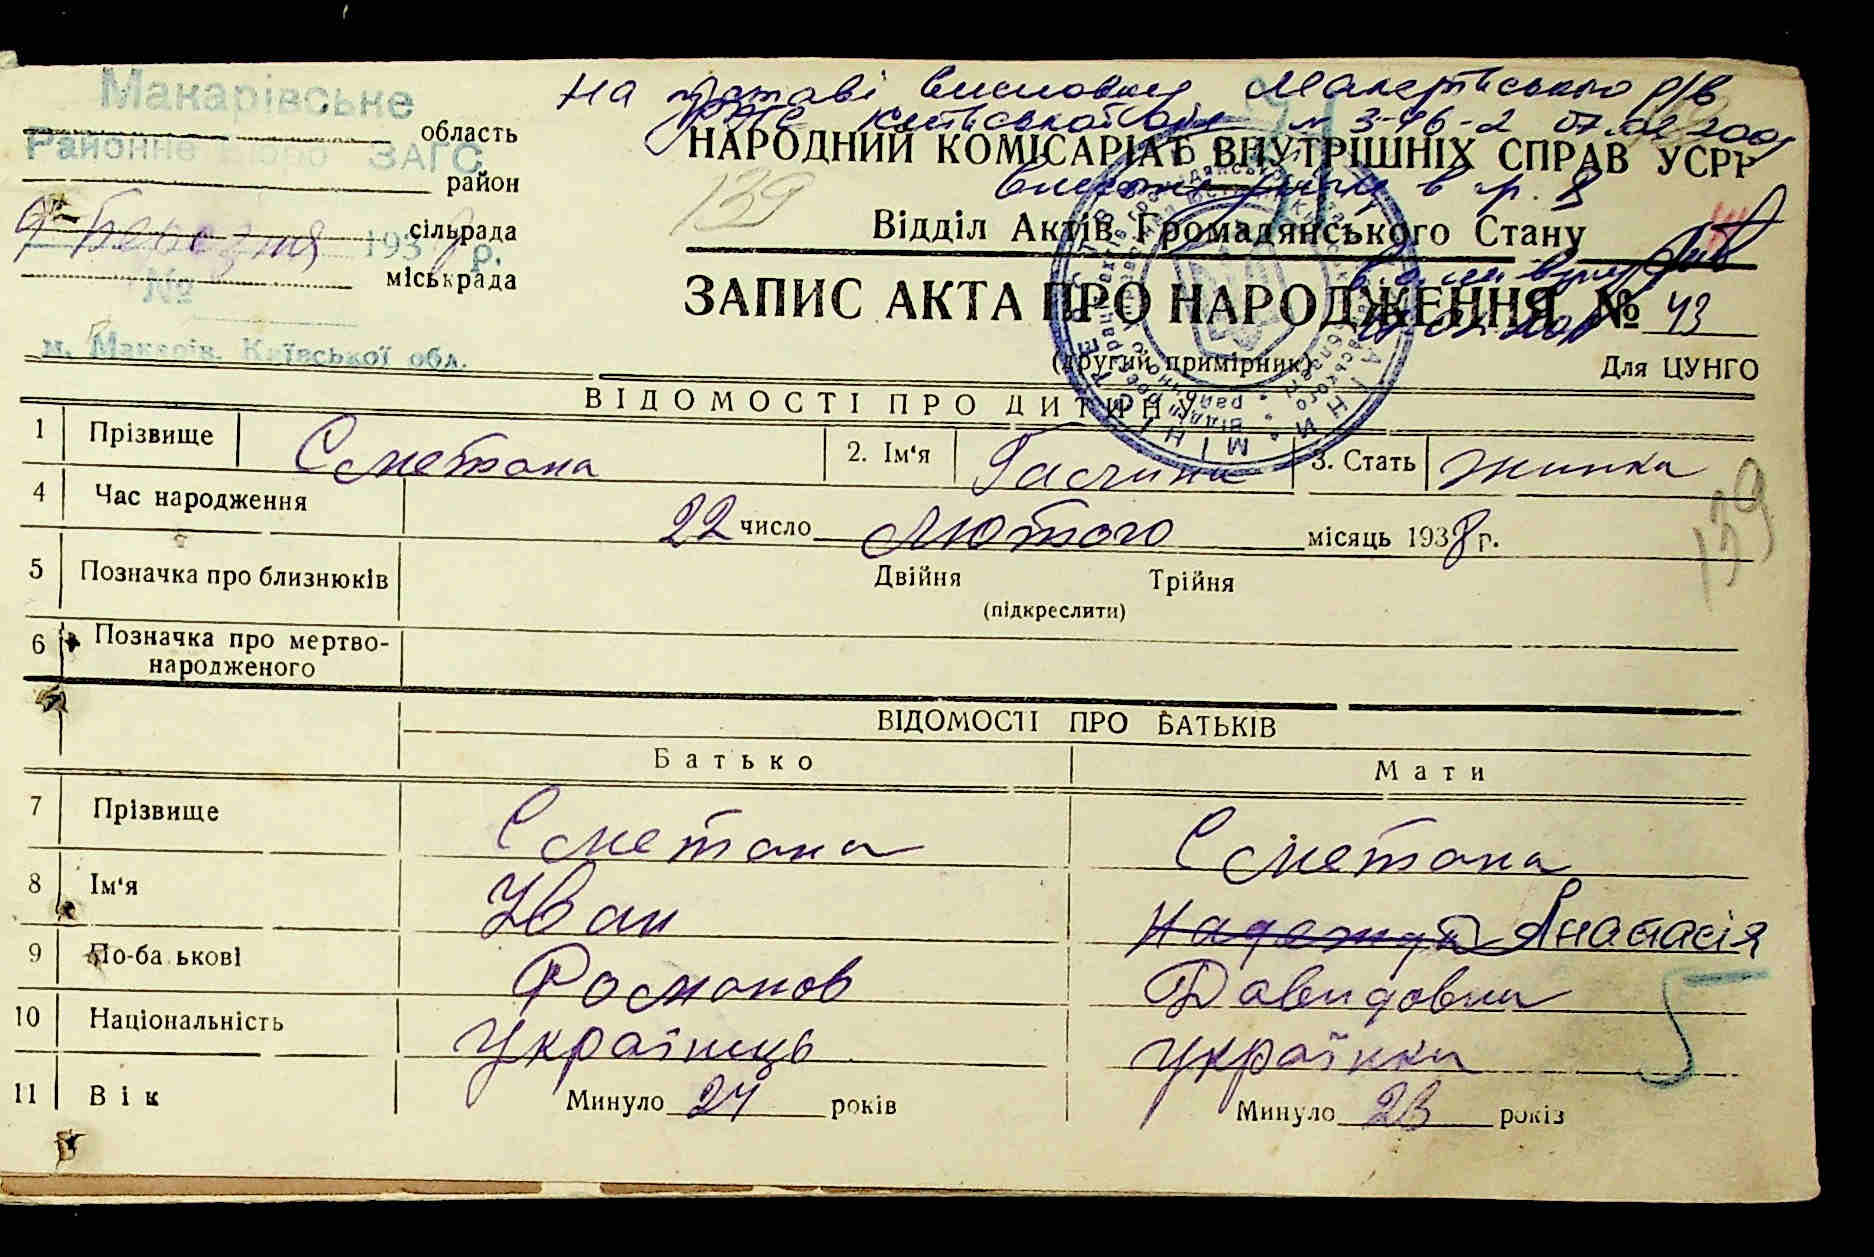 На підставі висновку Макарівського р/в
РАГС Київської обл № 3-46-2 07.02.2001
внесено зміну в гр. 8
Макарівське
Районне Бюро ЗАГС
область
район
сільрада
міськрада
9 Березня 1938 р.
№
м. Макарів, Київської обл.
139
НАРОДНИЙ КОМІСАРІАТ ВНУТРІШНІХ СПРАВ УСРР
Відділ Актів Громадянського Стану
ЗАПИС АКТА ПРО НАРОДЖЕННЯ № 43
(другий примірник)
Для ЦУНГО
ВІДОМОСТІ ПРО ДИТИНУ
1 Прізвище Сметана 2. Ім'я Галина 3. Стать жинка
4 Час народження 22 число Лютого місяць 1938 р.
139
5 Позначка про близнюків Двійня Трійня
(підкреслити)
6 Позначка про мертво-
народженого
ВІДОМОСТІ ПРО БАТЬКІВ
Батько Мати
7 Прізвище Сметана Сметана
8 Ім'я Іван Надежда Анастасія
9 По-ба ькові Романов Давидовна
10 Національність Українець українка
5
11 Вік Минуло 24 років Минуло 23 років